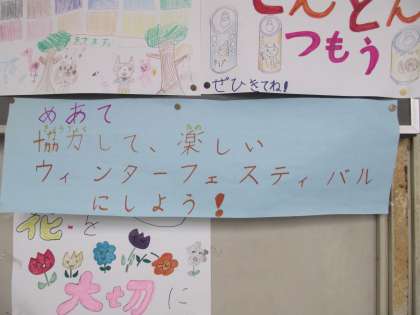 どんどん
つもう
ぜひきてね!
めあて
協力して、楽しい
ウィンターフェスティバル
にしよう!
花を
大切に